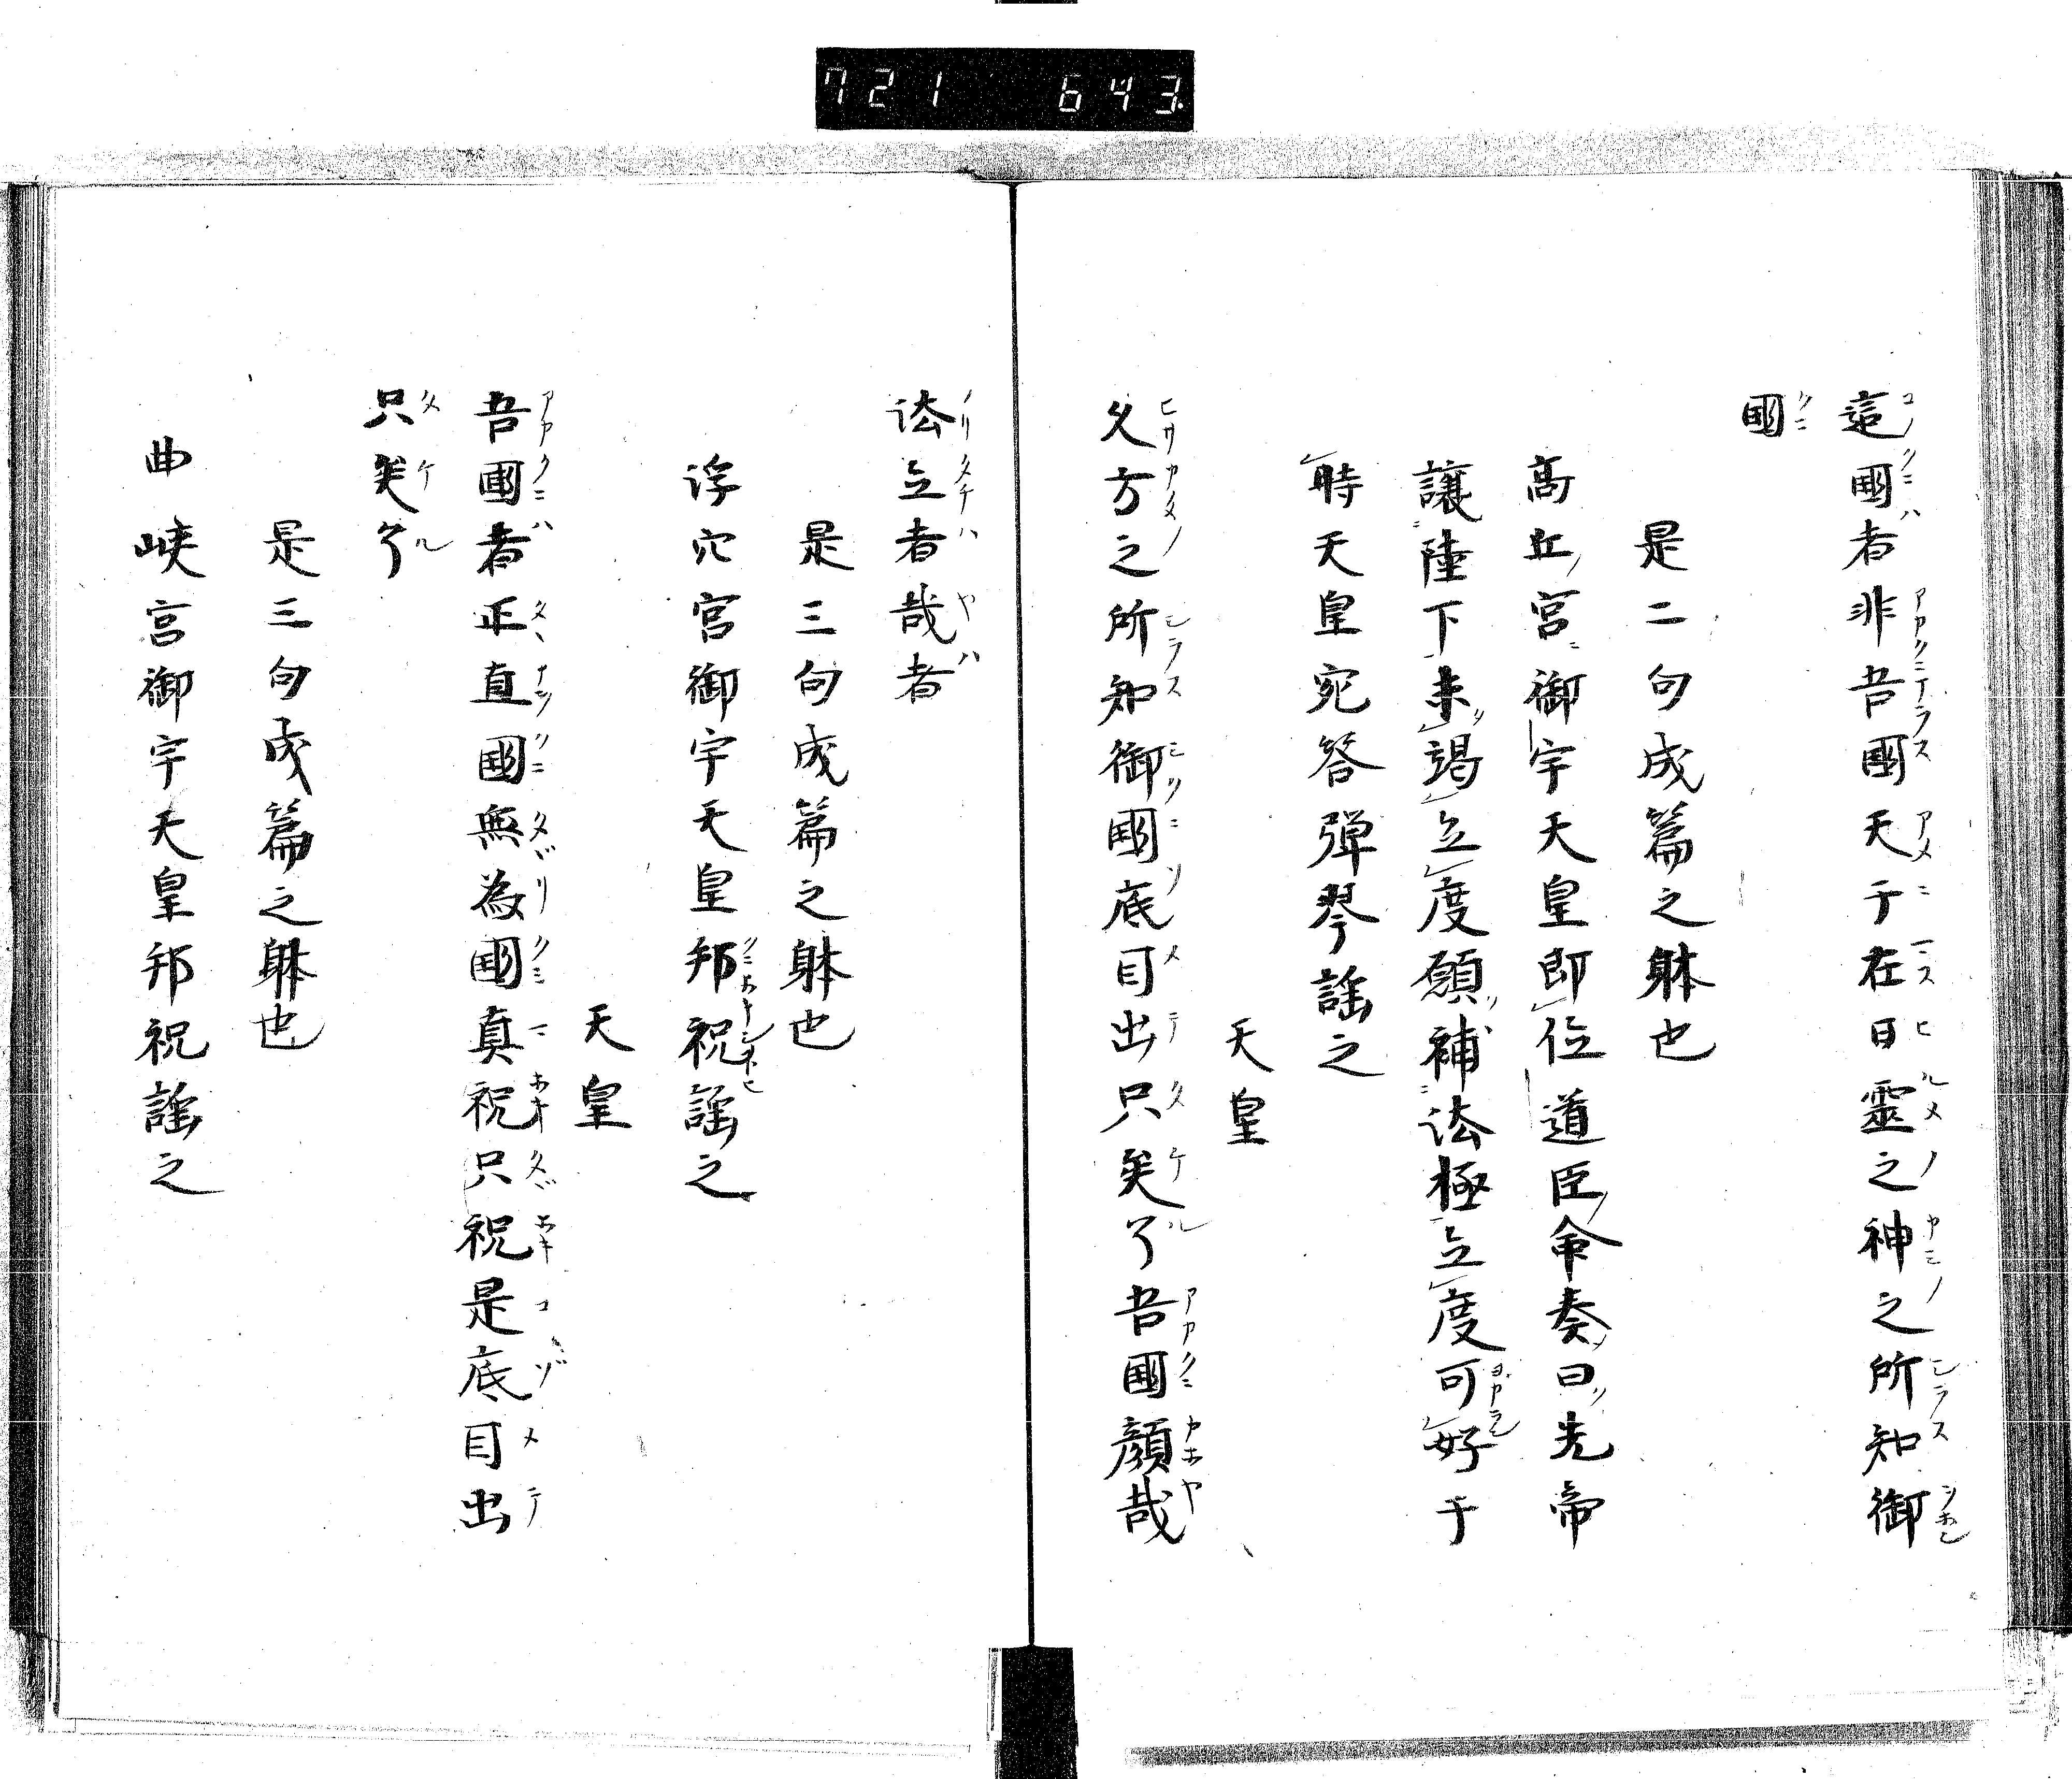 721 643
這國者非吾國天于在日靈之神之所知御
國
是二句成篇之躰也
高丘宮御宇天皇即位道臣命奏曰先帝
讓陸下未竭立度願補法極立度可好于
時天皇宛答彈琴謡之
天皇
久方之所知御國底目出只矣了吾國顏哉
法立者哉者
是三句成篇之躰也
浮穴宮御宇天皇邦祝謡之
天皇
吾國者正直國無為國真祝只祝是底目出
只矣了
是三句成篇之躰也
曲峡宮御宇天皇邦祝謡之